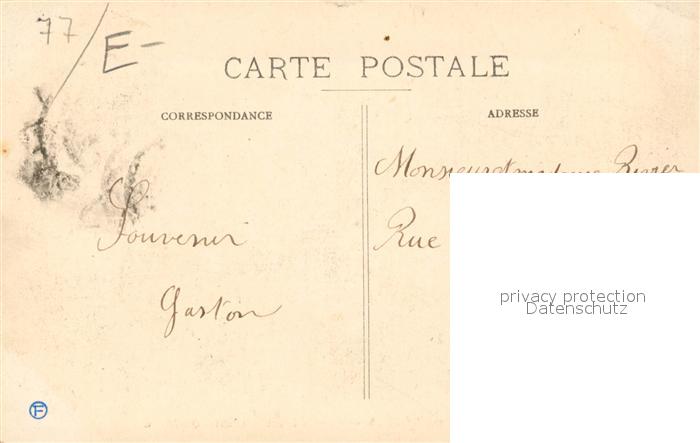 77/E-
CARTE POSTALE
CORRESPONDANCE
ADRESSE
Monsieur et madame
Rue
Souvenir
Gaston
privacy protection
Datenschutz